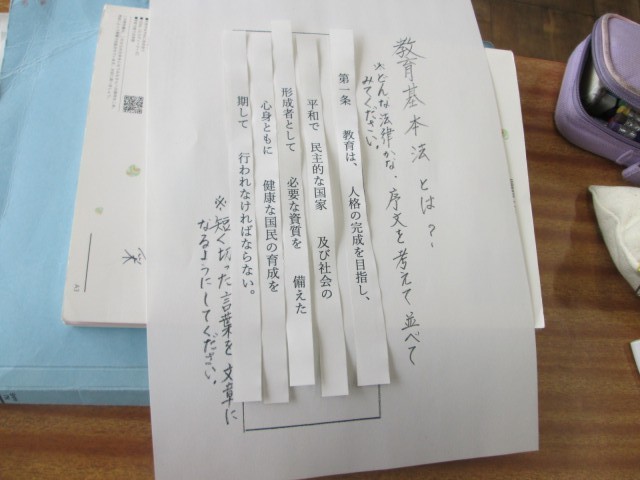 教育基本法とは?
※どんな法律かな、序文を考えて並べて
みてください。
第一条 教育は、人格の完成を目指し、
平和で 民主的な国家 及び社会の
形成者として 必要な資質を 備えた
心身ともに 健康な国民の育成を
期して 行われなければならない。
※短く切った言葉を文章に
なるようにしてください。